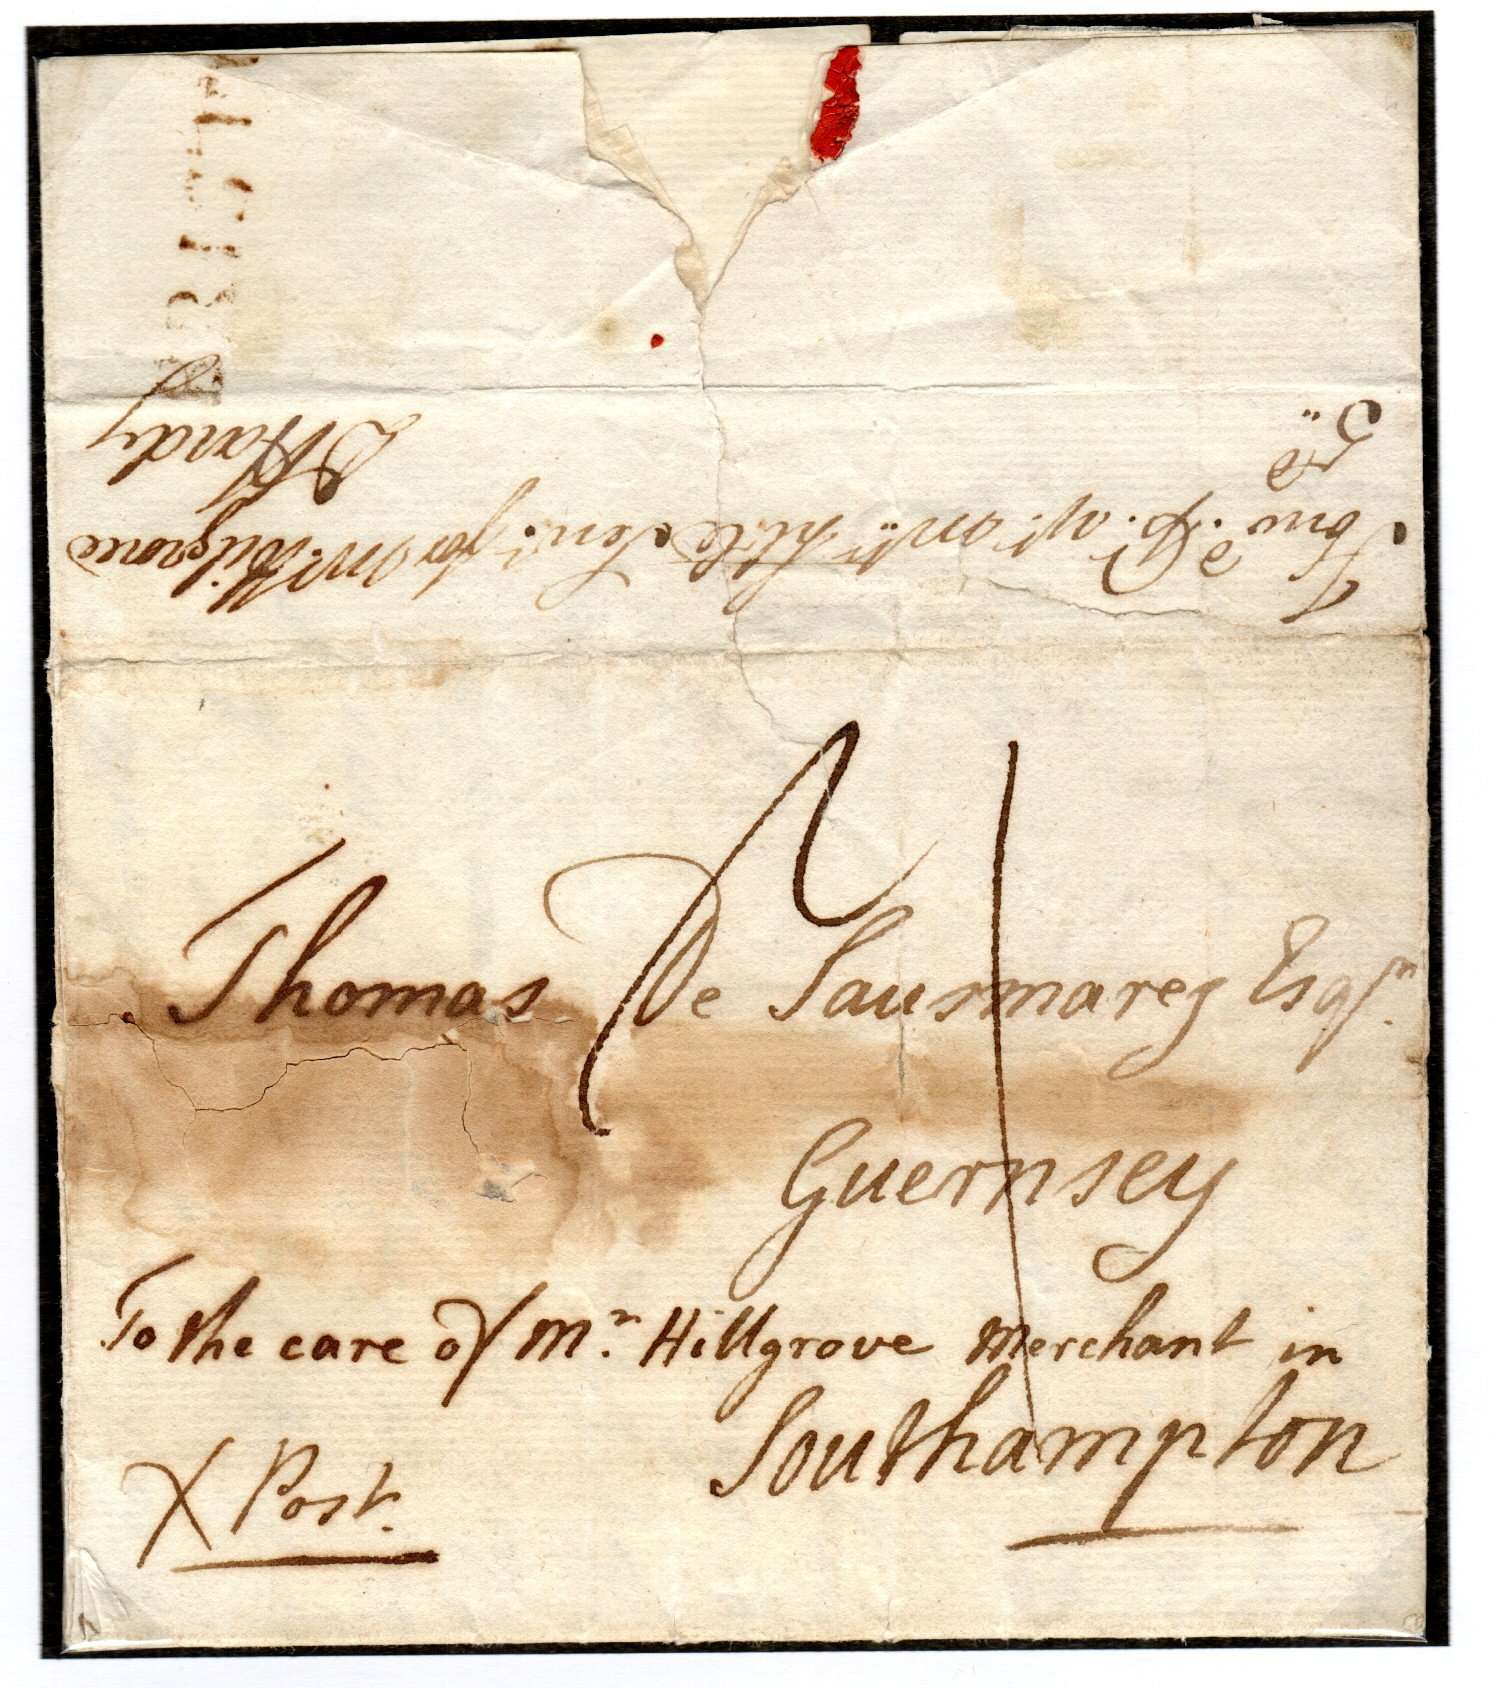 Thomas De Sausmarez Esqr.
Guernsey
To the care of Mr. Hillgrove Merchant in
Southampton
X Post.
for Mr. Hilgrove
Hardy